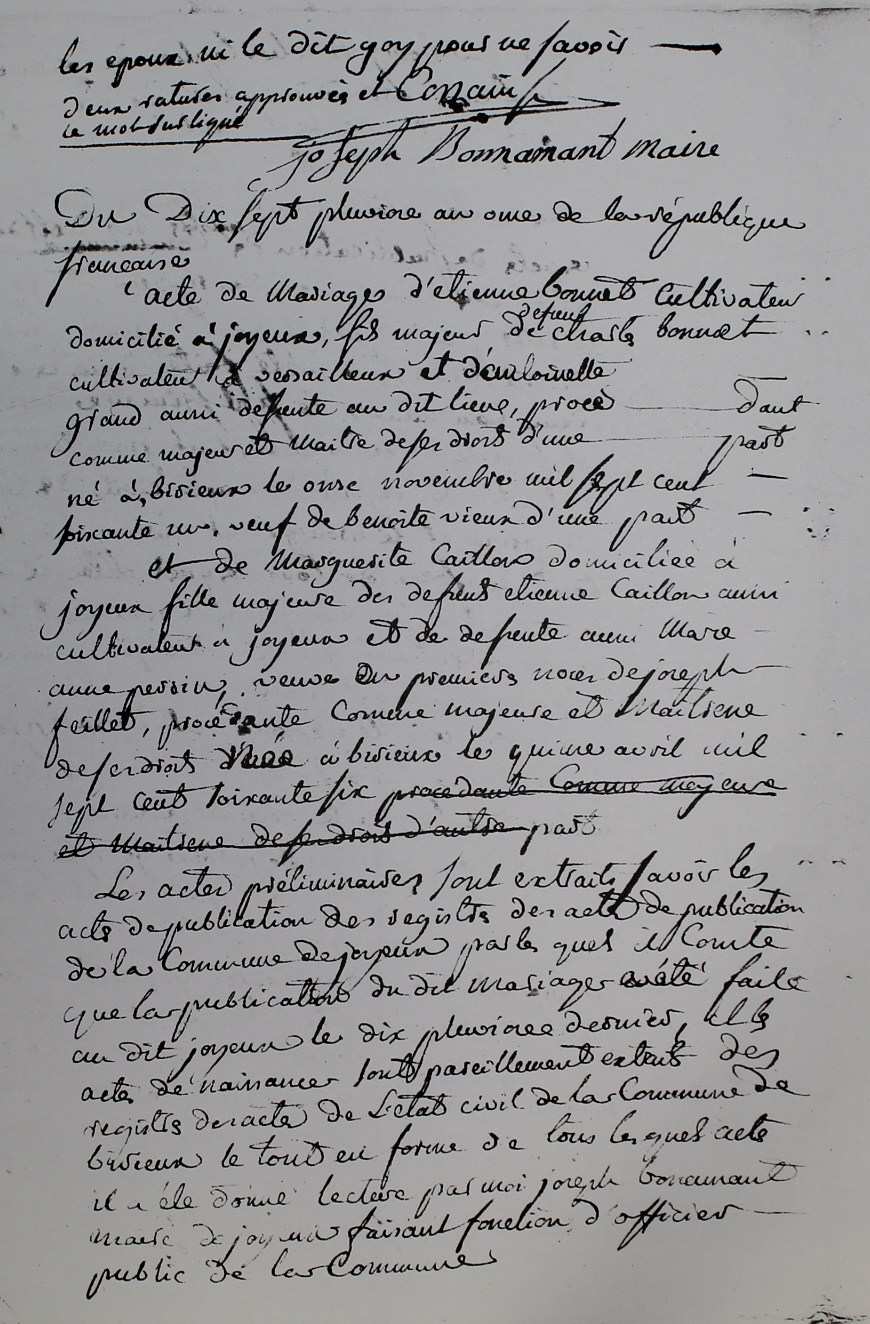 les epoux ni le dit goy pour ne savoir
deux ratures approuvés et
le mot surligné
joseph Bonnamant maire
Du Dix sept pluviose an onse de la république
francaise
acte de Mariage d'etienne bonnet Cultivateur
domicilié à joyeux, fils majeur de defeut charle bonnet
cultivateur à versailleux et d'entoinette
grand aussi defunte au dit lieue, procé dant
comme majeur et Maitre de ses droit d'une part
né à birieux le onse novembre mil sept cent
soixante un, veuf de benoite vieux d'une part
et de Marguerite Caillon domiciliée à
joyeux fille majeure des defeut etienne Caillon aussi
cultivateur à joyeux et de defeute aussi Marie
anne perrin, veuve en premiere noces de joseph
feillet, procédante Comme majeure et Maitrene
de ses droit née à birieux le quinse avril mil
sept cent soixante six procédante Comme majeure
et Maitrene de ses droits d'autre part
Les actes préliminaires sont extraits savoir les
acte de publication des registre des acte de publication
de la Commune de joyeux par les quel il Comte
que la publication du dit Mariage a été faite
au dit joyeux le dix pluviose dernier, et les
acte de naissance sont pareillement extrait des
registre des acte de L'etat civil de la Commune de
birieux le tout en forme de tous les quel acte
il a éte donné lecture par moi joseph bonamant
maire de joyeux faisant fonction d'officier
public de la Commune